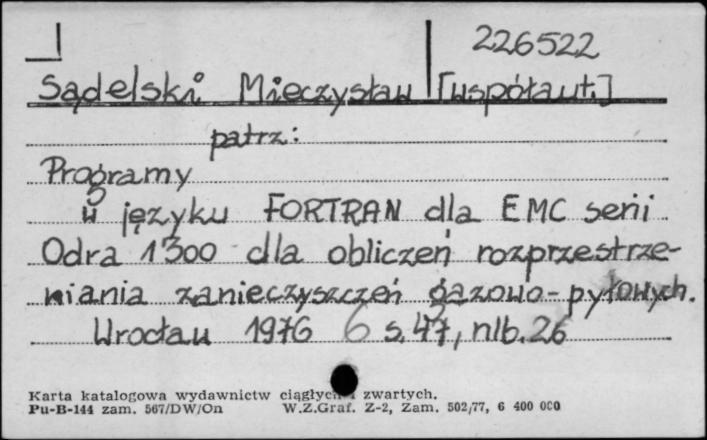 226522
Sądelski Mieczysław [współaut.]
patrz:
Programy
w języku FORTRAN dla EMC serii
Odra 1300 dla obliczeń rozprzestrze-
niania zanieczyszczeń gazowo-pyłowych.
Wrocław 1976 6 s. 47, nlb. 26
Karta katalogowa wydawnictw ciągłych i zwartych.
Pu-B-144 zam. 567/DW/On W.Z.Graf. Z-2, Zam. 502/77, 6 400 000